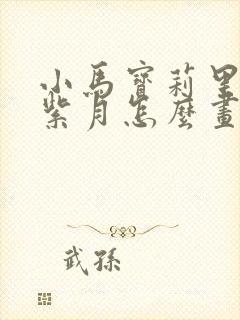 小馬寶莉里
紫月怎麼畫
武孫